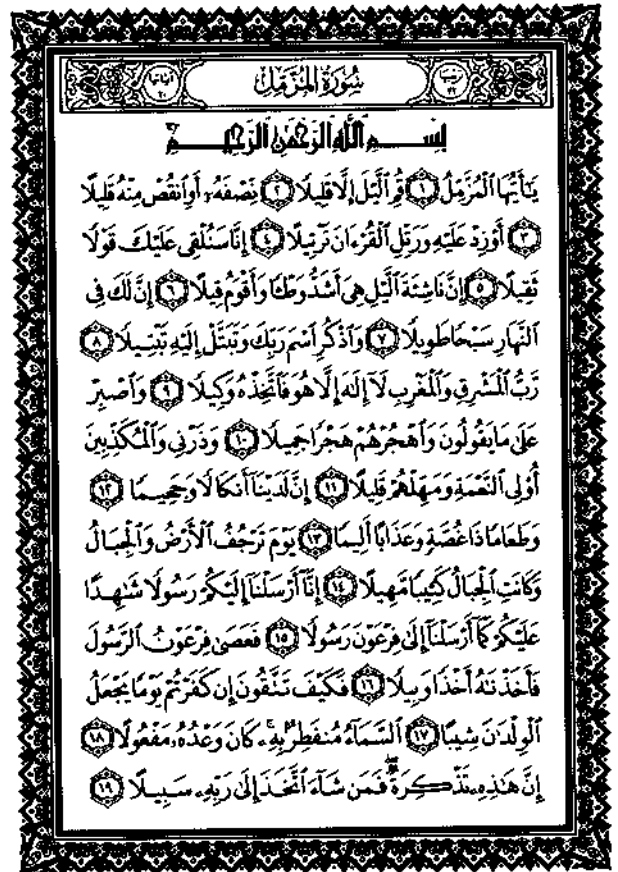 ترتيبها ٧٣ سُورَةُ الْمُزَّمِّلِ آياتها ٢٠
بِسْمِ اللَّهِ الرَّحْمَٰنِ الرَّحِيمِ
يَٰٓأَيُّهَا ٱلْمُزَّمِّلُ ١ قُمِ ٱلَّيْلَ إِلَّا قَلِيلًا ٢ نِّصْفَهُۥٓ أَوِ ٱنقُصْ مِنْهُ قَلِيلًا
٣ أَوْ زِدْ عَلَيْهِ وَرَتِّلِ ٱلْقُرْءَانَ تَرْتِيلًا ٤ إِنَّا سَنُلْقِى عَلَيْكَ قَوْلًا
ثَقِيلًا ٥ إِنَّ نَاشِئَةَ ٱلَّيْلِ هِىَ أَشَدُّ وَطْـًٔا وَأَقْوَمُ قِيلًا ٦ إِنَّ لَكَ فِى
ٱلنَّهَارِ سَبْحًا طَوِيلًا ٧ وَٱذْكُرِ ٱسْمَ رَبِّكَ وَتَبَتَّلْ إِلَيْهِ تَبْتِيلًا ٨
رَّبُّ ٱلْمَشْرِقِ وَٱلْمَغْرِبِ لَآ إِلَٰهَ إِلَّا هُوَ فَٱتَّخِذْهُ وَكِيلًا ٩ وَٱصْبِرْ
عَلَىٰ مَا يَقُولُونَ وَٱهْجُرْهُمْ هَجْرًا جَمِيلًا ١٠ وَذَرْنِى وَٱلْمُكَذِّبِينَ
أُو۟لِى ٱلنَّعْمَةِ وَمَهِّلْهُمْ قَلِيلًا ١١ إِنَّ لَدَيْنَآ أَنكَالًا وَجَحِيمًا ١٢
وَطَعَامًا ذَا غُصَّةٍ وَعَذَابًا أَلِيمًا ١٣ يَوْمَ تَرْجُفُ ٱلْأَرْضُ وَٱلْجِبَالُ
وَكَانَتِ ٱلْجِبَالُ كَثِيبًا مَّهِيلًا ١٤ إِنَّآ أَرْسَلْنَآ إِلَيْكُمْ رَسُولًا شَٰهِدًا
عَلَيْكُمْ كَمَآ أَرْسَلْنَآ إِلَىٰ فِرْعَوْنَ رَسُولًا ١٥ فَعَصَىٰ فِرْعَوْنُ ٱلرَّسُولَ
فَأَخَذْنَٰهُ أَخْذًا وَبِيلًا ١٦ فَكَيْفَ تَتَّقُونَ إِن كَفَرْتُمْ يَوْمًا يَجْعَلُ
ٱلْوِلْدَٰنَ شِيبًا ١٧ ٱلسَّمَآءُ مُنفَطِرٌۢ بِهِۦ ۚ كَانَ وَعْدُهُۥ مَفْعُولًا ١٨
إِنَّ هَٰذِهِۦ تَذْكِرَةٌ ۖ فَمَن شَآءَ ٱتَّخَذَ إِلَىٰ رَبِّهِۦ سَبِيلًا ١٩